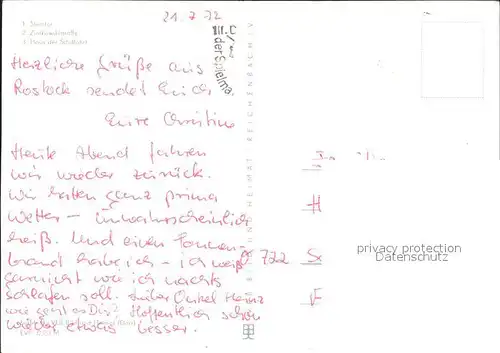 21.7.72
Herzliche Grüße aus
Rostock sendet Euch
Eure Christina
Heute Abend fahren
wir wieder zurück.
Wir hatten ganz prima
Wetter – unwahrscheinlich
heiß. Und einen Sonnen-
brand habe ich – ich weiß
garnicht wie ich nachts
schlafen soll. Lieber Onkel Heinz
wie geht es Dir? Hoffentlich schon
wieder etwas besser.
722
H
privacy protection
Datenschutz
BILD UND HEIMAT REICHENBACH I. V.
der Spielma